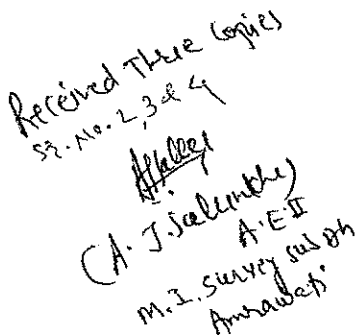 Received Three Copies
Sr. No. 2, 3 & 4
(A. J. Salunkhe)
A.E.II
M.I. Survey sus Dn
Amravati